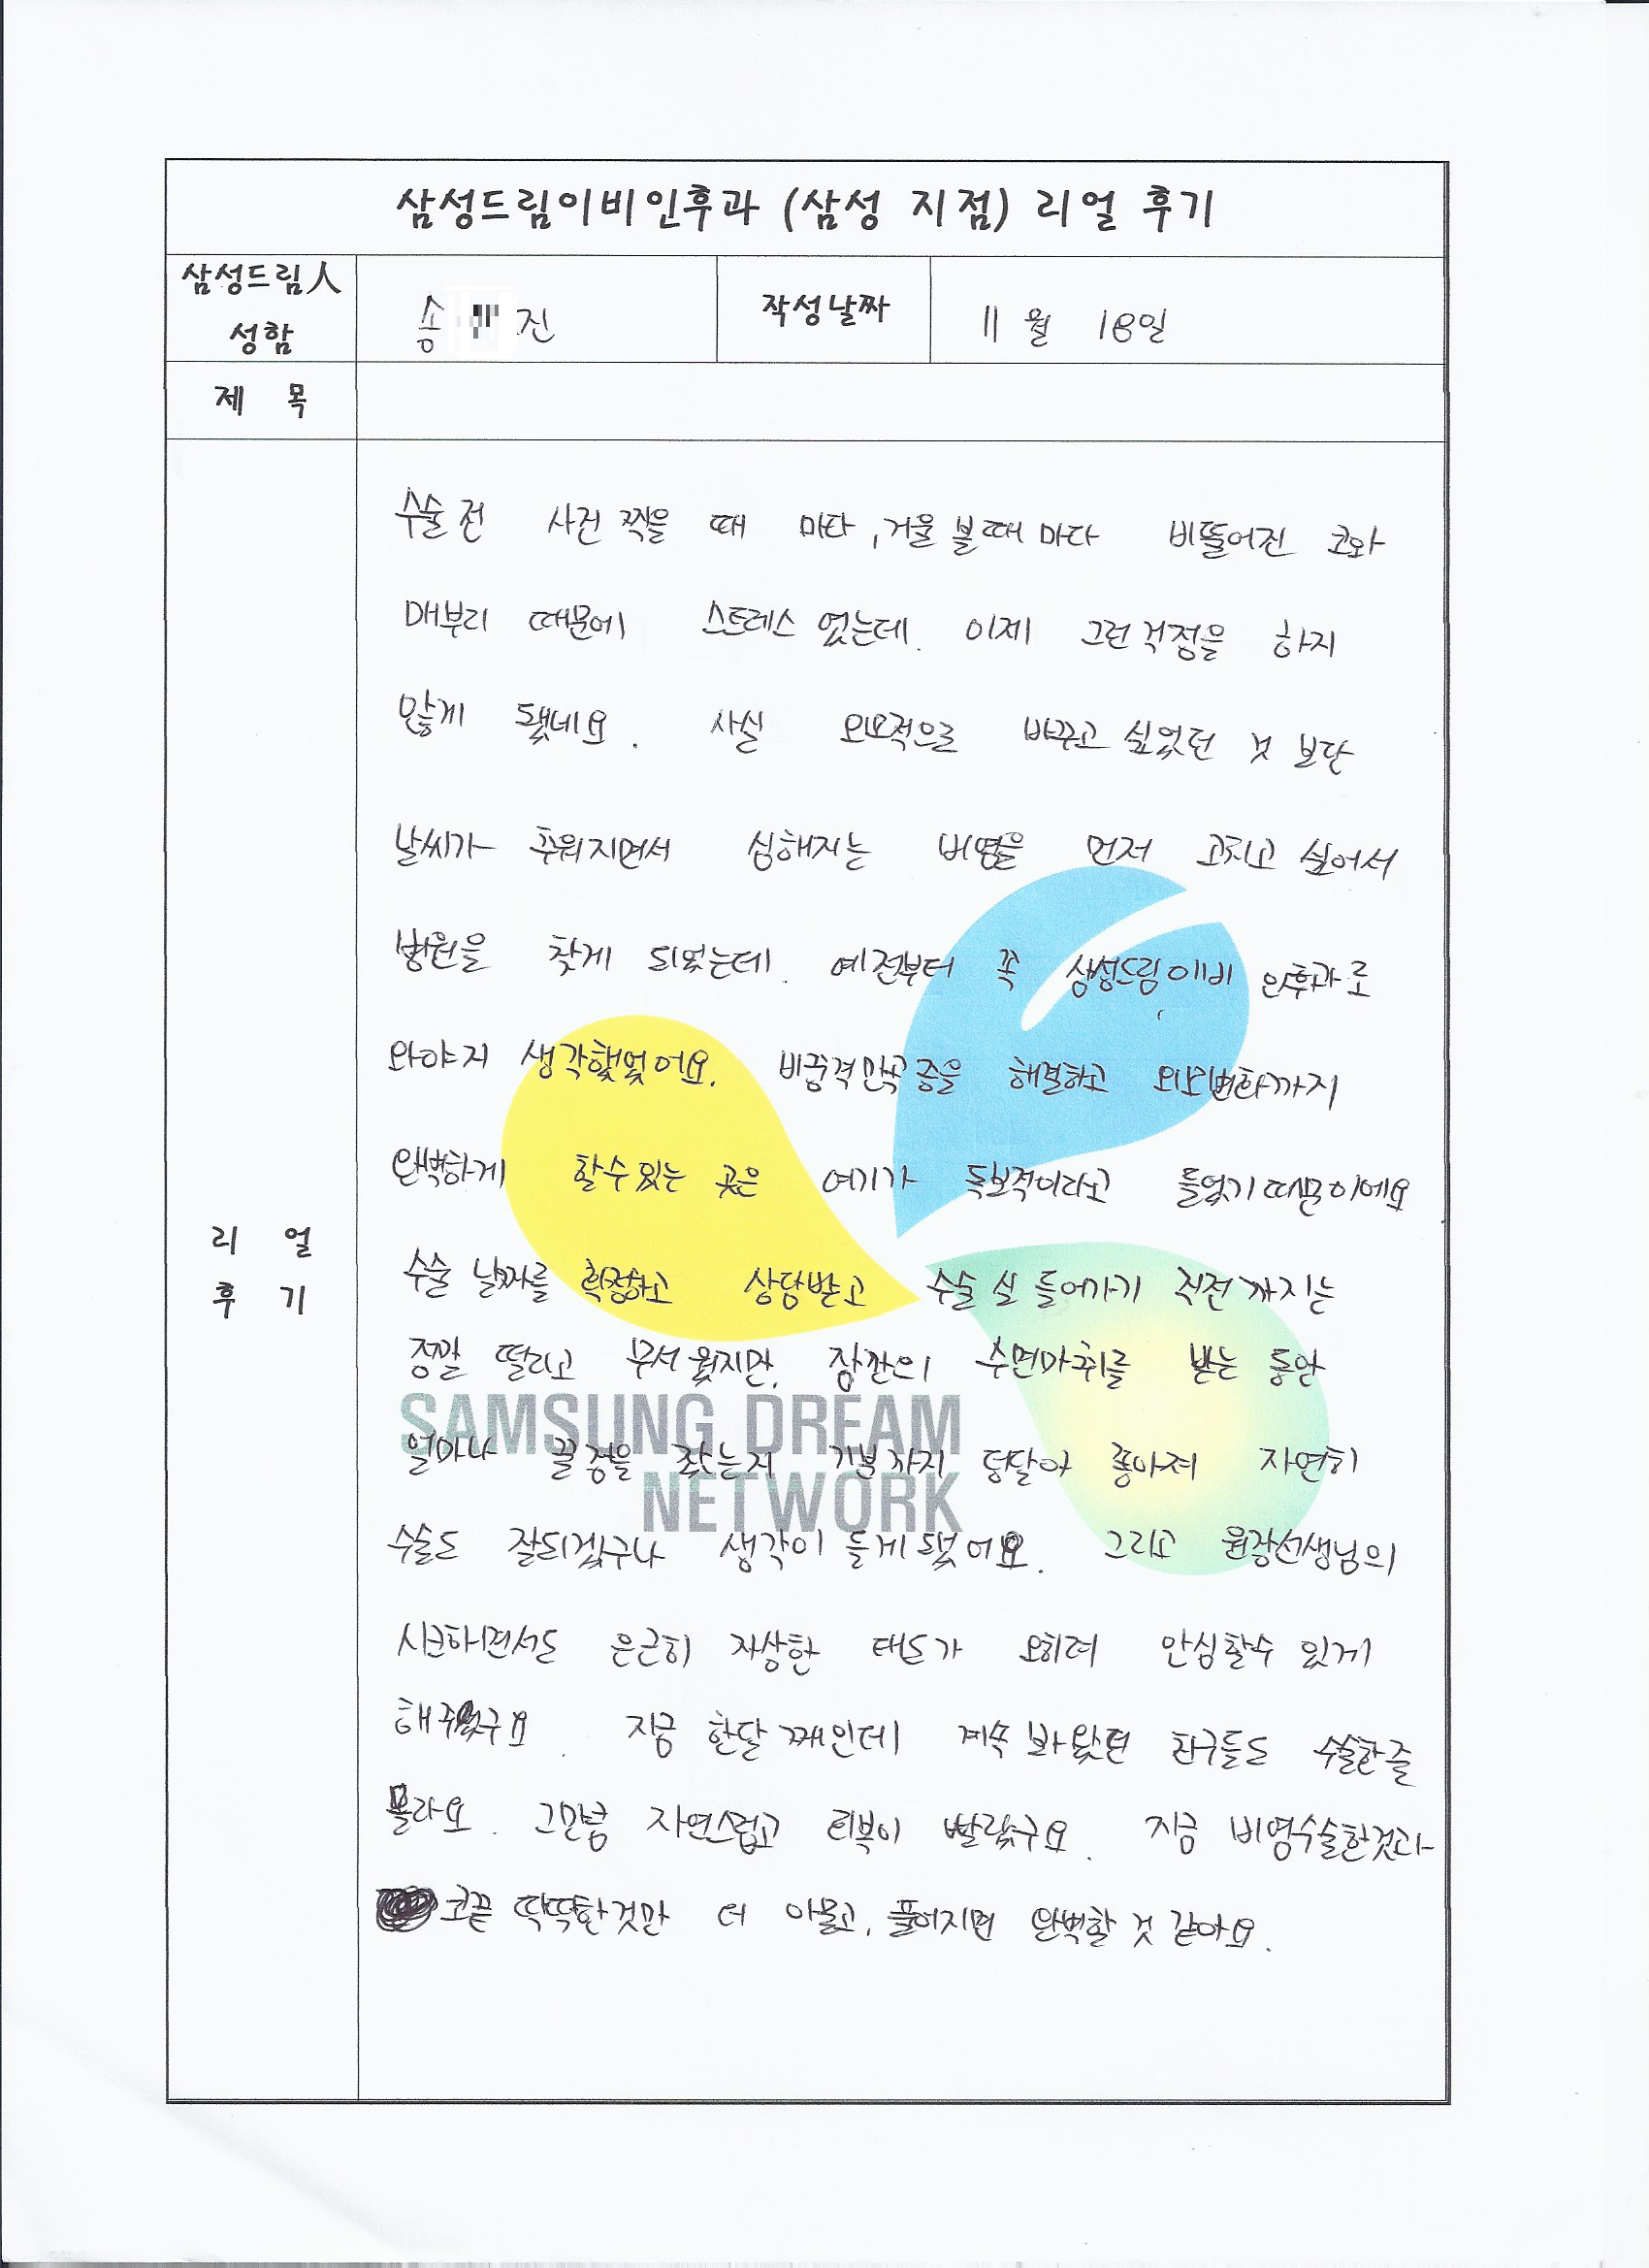 삼성드림이비인후과 (삼성 지점) 리얼 후기
삼성드림人
성함
송 진
작성날짜
11월 18일
제 목
리 얼
후 기
수술전 사진 찍을 때 마다, 거울 볼때 마다 비뚤어진 코와
매부리 때문에 스트레스 였는데. 이제 그런걱정을 하지
않게 됐네요. 사실 외모적으로 바꾸고 싶었던 것 보단
날씨가 추워지면서 심해지는 비염을 먼저 고치고 싶어서
병원을 찾게 되었는데. 예전부터 쭉 삼성드림이비인후과로
와야지 생각했었어요. 비중격만곡증을 해결하고 외모변화까지
완벽하게 할수있는 곳은 여기가 독보적이라고 들었기 때문이에요
수술 날짜를 확정하고 상담받고 수술실 들어가기 직전까지는
정말 떨리고 무서웠지만, 잠깐의 수면마취를 받는 동안
얼마나 꿀잠을 잤는지 기분까지 덩달아 좋아져 자연히
수술도 잘되겠구나 생각이 들게됐어요. 그리고 원장선생님의
시크하면서도 은근히 자상한 태도가 오히려 안심할수 있게
해주셨구요. 지금 한달째인데 계속 봐왔던 친구들도 수술한줄
몰라요. 그만큼 자연스럽고 회복이 빨랐구요. 지금 비염수술한것과
코끝 딱딱한것만 더 아물고, 풀어지면 완벽할 것 같아요.
SAMSUNG DREAM
NETWORK